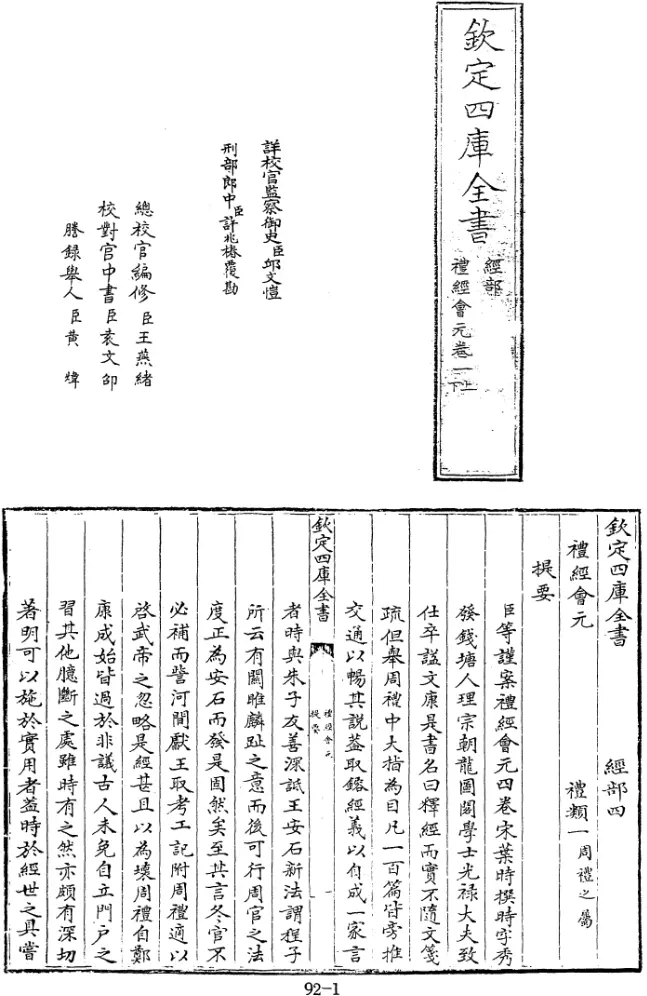 欽定四庫全書
經部
禮經會元卷一上下
詳校官監察御史臣邱文愷
刑部郎中臣許兆椿覆勘
總校官編修臣王燕緒
校對官中書臣袁文邵
謄錄舉人臣黄煒
欽定四庫全書 經部四
禮經會元 禮類一周禮之屬
提要
臣等謹案禮經會元四卷宋葉時撰時字秀
發錢塘人理宗朝龍圖閣學士光祿大夫致
仕卒諡文康是書名曰釋經而實不隨文箋
疏但舉周禮中大指為目凡一百篇皆旁推
交通以暢其說葢取鎔經義以自成一家言
欽定四庫全書
禮經會元
提要
者時與朱子友善深詆王安石新法謂程子
所云有關雎麟趾之意而後可行周官之法
度正為安石而發是固然矣至其言冬官不
必補而訾河間獻王取考工記附周禮適以
啓武帝之忽略是經甚且以為壞周禮自鄭
康成始皆過於非議古人未免自立門户之
習其他臆斷之處雖時有之然亦頗有深切
著明可以施於實用者葢時於經世之具嘗
92-1